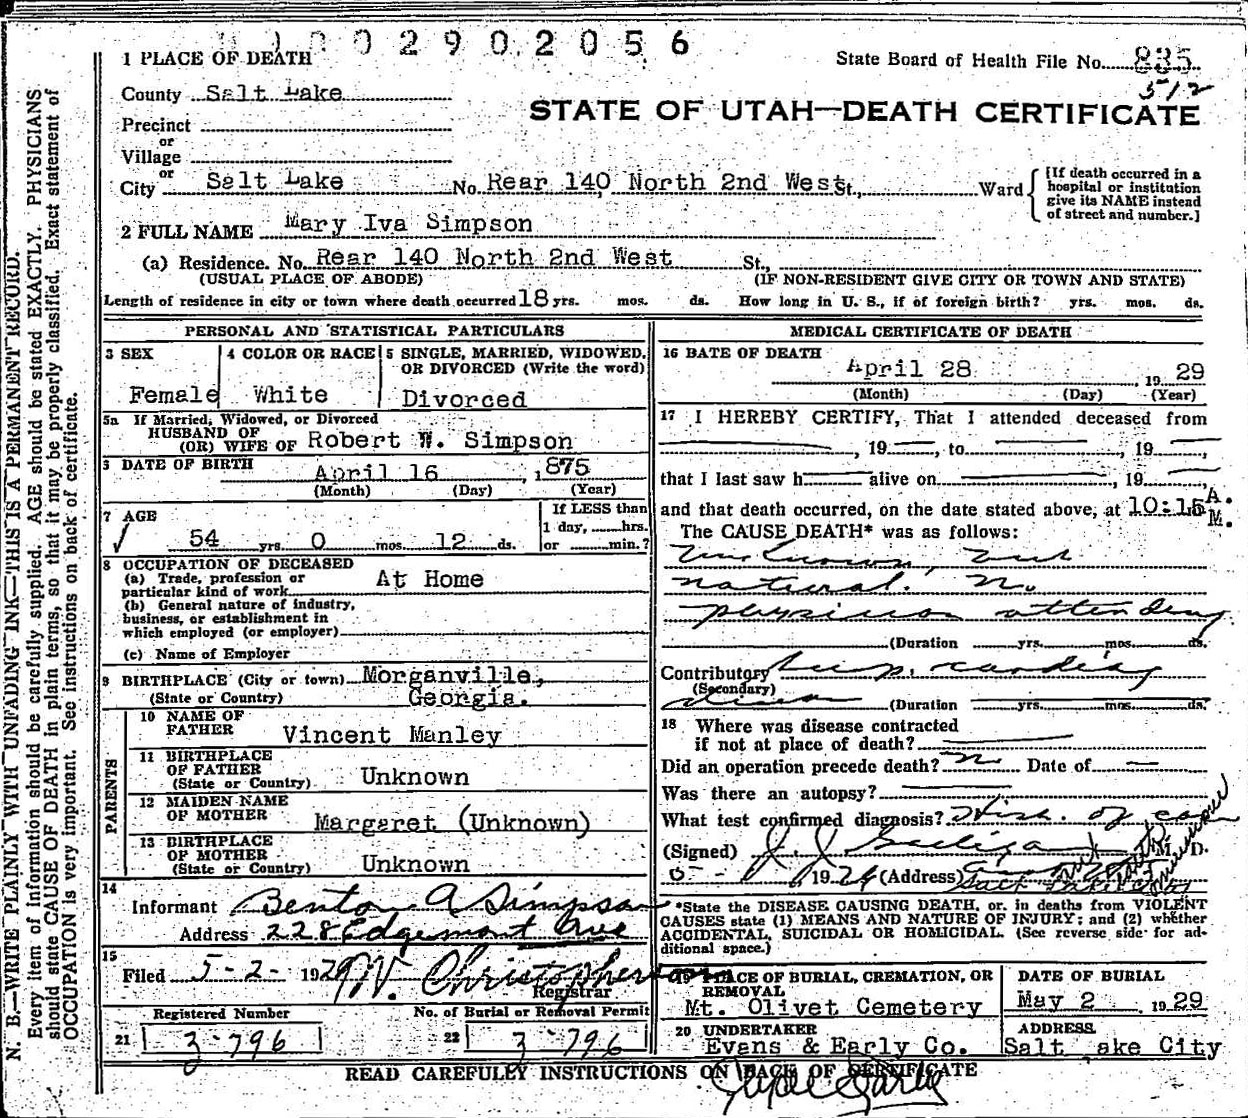 0 0 2 9 0 2 0 5 6
1 PLACE OF DEATH
State Board of Health File No. 835
512
County Salt Lake
STATE OF UTAH—DEATH CERTIFICATE
Precinct
or
Village
or
City Salt Lake No. Rear 140 North 2nd West St., Ward
[If death occurred in a hospital or institution give its NAME instead of street and number.]
2 FULL NAME Mary Iva Simpson
(a) Residence. No. Rear 140 North 2nd West St.,
(USUAL PLACE OF ABODE) (IF NON-RESIDENT GIVE CITY OR TOWN AND STATE)
Length of residence in city or town where death occurred 18 yrs. mos. ds. How long in U. S., if of foreign birth? yrs. mos. ds.
PERSONAL AND STATISTICAL PARTICULARS
3 SEX
Female
4 COLOR OR RACE
White
5 SINGLE, MARRIED, WIDOWED, OR DIVORCED (Write the word)
Divorced
5a If Married, Widowed, or Divorced
HUSBAND OF
(OR) WIFE OF Robert W. Simpson
DATE OF BIRTH April 16, 1875
(Month) (Day) (Year)
7 AGE
54 yrs. 0 mos. 12 ds.
If LESS than
1 day, hrs.
or min.?
8 OCCUPATION OF DECEASED
(a) Trade, profession or
particular kind of work At Home
(b) General nature of industry,
business, or establishment in
which employed (or employer)
(c) Name of Employer
9 BIRTHPLACE (City or town) Morganville,
(State or Country) Georgia.
PARENTS
10 NAME OF
FATHER Vincent Manley
11 BIRTHPLACE
OF FATHER
(State or Country) Unknown
12 MAIDEN NAME
OF MOTHER Margaret (Unknown)
13 BIRTHPLACE
OF MOTHER
(State or Country) Unknown
14
Informant Benton A Simpson
Address 228 Edgemont Ave
15
Filed 5-2- 1929 W. Christopherson
Registrar
Registered Number
21 3-796
No. of Burial or Removal Permit
22 3 796
MEDICAL CERTIFICATE OF DEATH
16 DATE OF DEATH
April 28, 1929
(Month) (Day) (Year)
17 I HEREBY CERTIFY, That I attended deceased from
, 19 , to , 19 ,
that I last saw h alive on , 19
and that death occurred, on the date stated above, at 10:15 A. M.
The CAUSE DEATH* was as follows:
Unknown, but
natural. No
physician attending
(Duration yrs. mos. ds.
Contributory Sup. cardiac
(Secondary)
(Duration yrs. mos. ds.
18 Where was disease contracted
if not at place of death?
Did an operation precede death? No Date of
Was there an autopsy?
What test confirmed diagnosis? Hist. of case
(Signed) J. J. M. D.
1929 (Address) Salt Lake City
*State the DISEASE CAUSING DEATH, or, in deaths from VIOLENT
CAUSES state (1) MEANS AND NATURE OF INJURY; and (2) whether
ACCIDENTAL, SUICIDAL OR HOMICIDAL. (See reverse side for ad-
ditional space.)
19 PLACE OF BURIAL, CREMATION, OR
REMOVAL
Mt. Olivet Cemetery
DATE OF BURIAL
May 2, 1929
20 UNDERTAKER
Evans & Early Co.
ADDRESS
Salt ake City
READ CAREFULLY INSTRUCTIONS ON BACK OF CERTIFICATE
N. B.—WRITE PLAINLY WITH UNFADING INK—THIS IS A PERMANENT RECORD.
Every item of Information should be carefully supplied. AGE should be stated EXACTLY. PHYSICIANS
should state CAUSE OF DEATH in plain terms, so that it may be properly classified. Exact statement of
OCCUPATION is very important. See instructions on back of certificate.